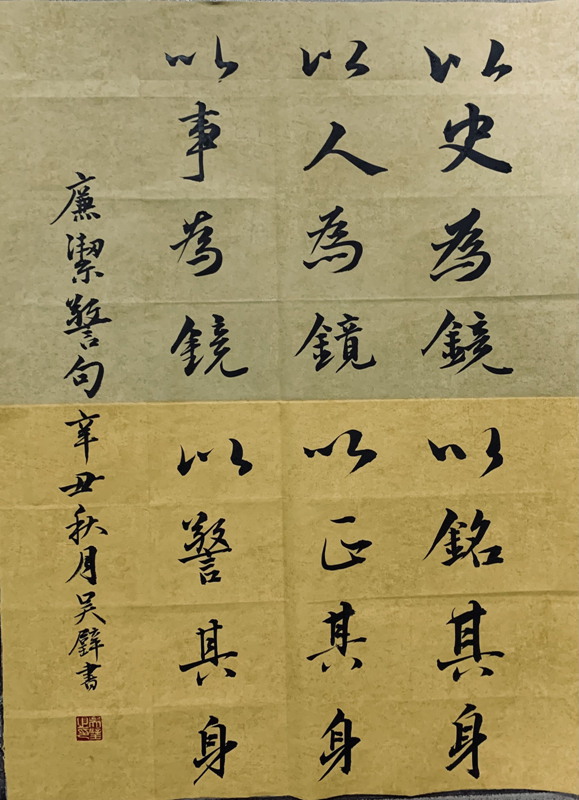 以史為鏡以銘其身
以人為鏡以正其身
以事為鏡以警其身
廉潔警句辛丑秋月吴璧書